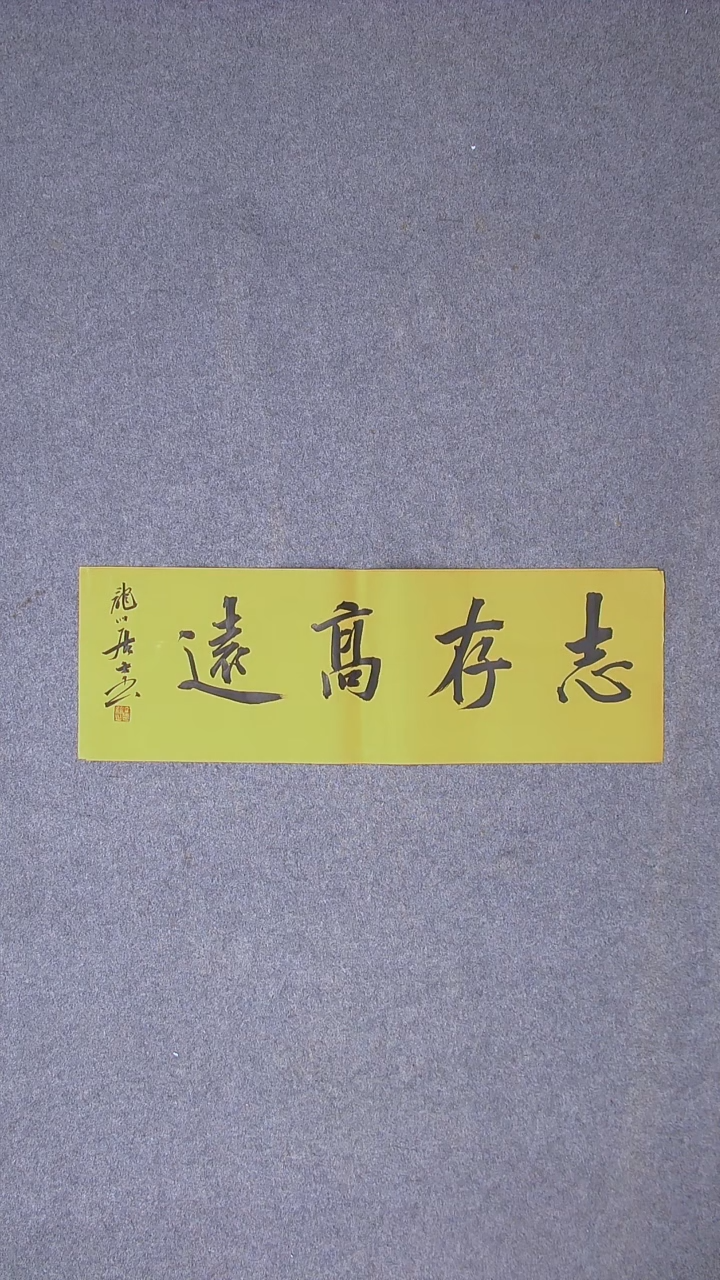 志存高遠
龍川居士書